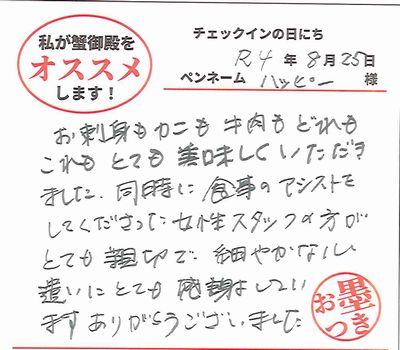 私が蟹御殿を
オススメ
します!
チェックインの日にち
R4年8月25日
ペンネーム ハッピー 様
お刺身もカニも牛肉もどれも
これもとても美味しくいただき
ました。同時に食事のアシストを
してくださった女性スタッフの方が
とても親切で細やかな心
遣いにとても感謝してい
ますありがとうございました
お墨つき